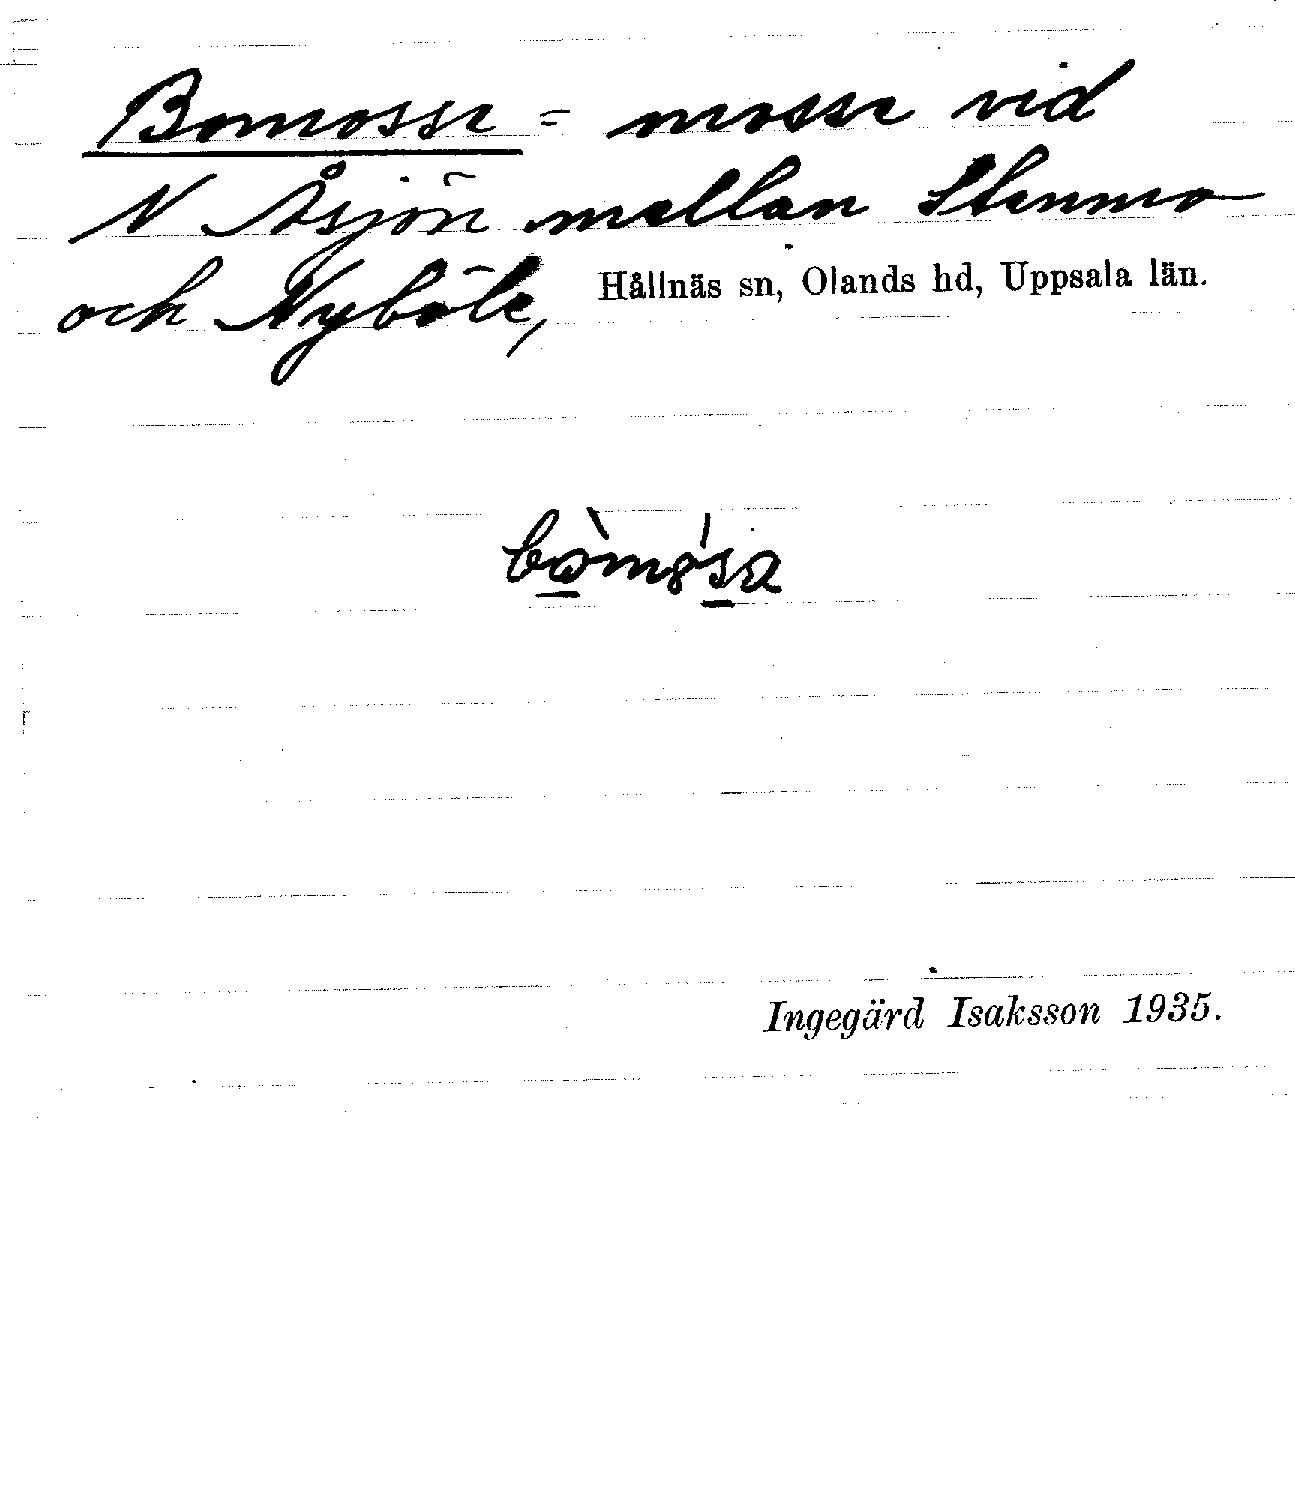 Bomosse = mosse vid
N Åsjön mellan Stenmo
och Nyböle, Hållnäs sn, Olands hd, Uppsala län.
Ingegärd Isaksson 1935.